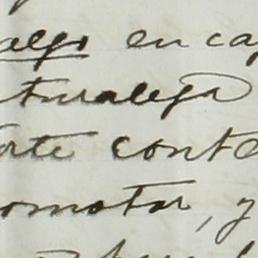 algo en ca
turalega
rte conte
omotor, y